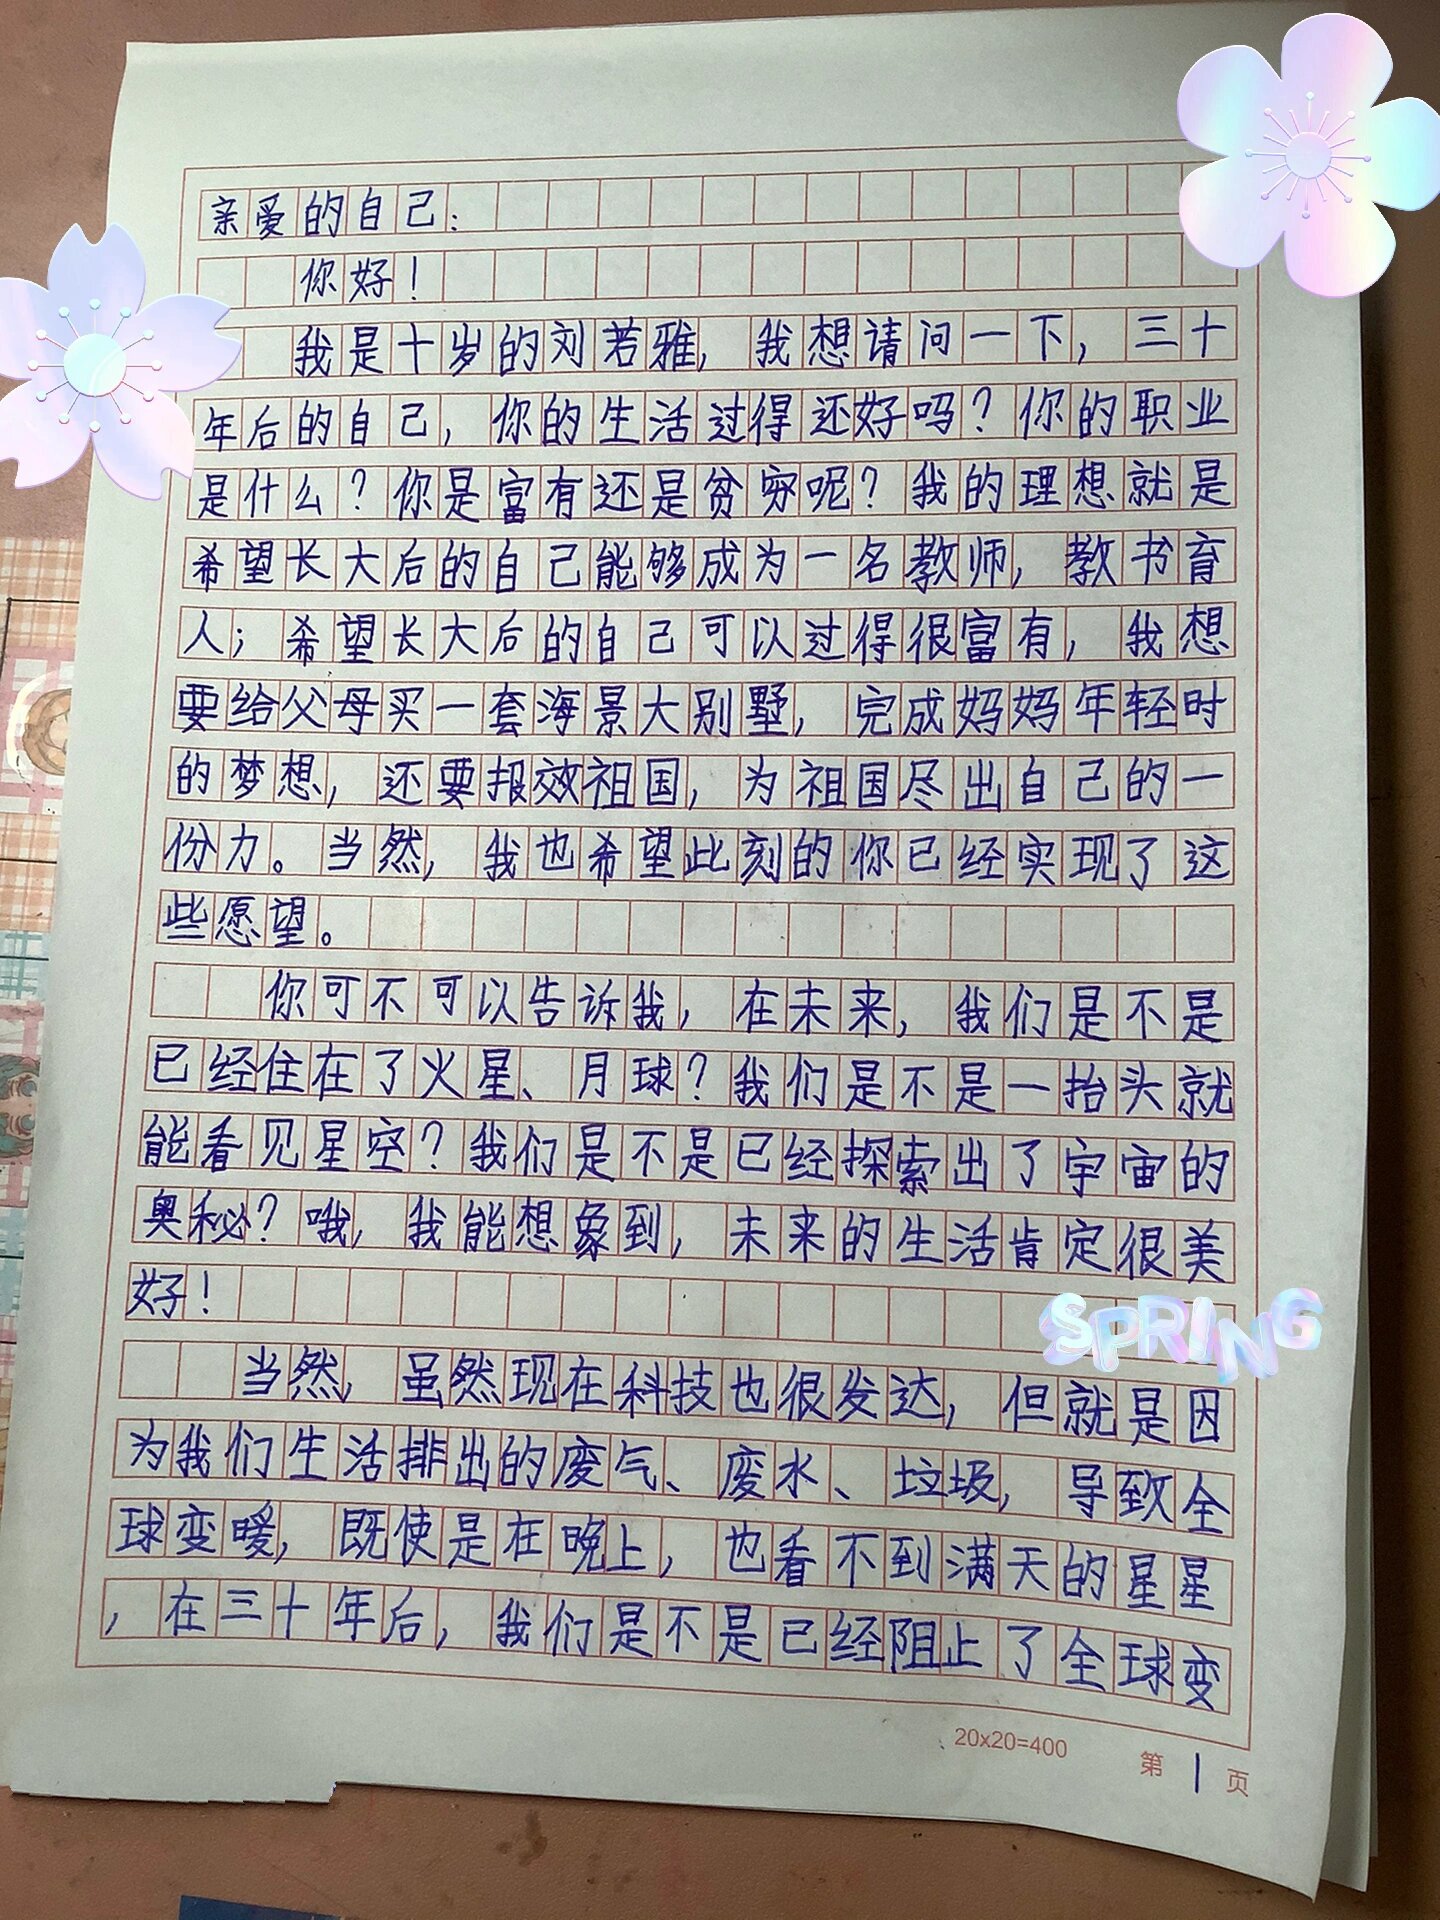 亲爱的自己：
你好！
我是十岁的刘若雅，我想请问一下，三十
年后的自己，你的生活过得还好吗？你的职业
是什么？你是富有还是贫穷呢？我的理想就是
希望长大后的自己能够成为一名教师，教书育
人；希望长大后的自己可以过得很富有，我想
要给父母买一套海景大别墅，完成妈妈年轻时
的梦想，还要报效祖国，为祖国尽出自己的一
份力。当然，我也希望此刻的你已经实现了这
些愿望。
你可不可以告诉我，在未来，我们是不是
已经住在了火星、月球？我们是不是一抬头就
能看见星空？我们是不是已经探索出了宇宙的
奥秘？哦，我能想象到，未来的生活肯定很美
好！
SPRING
当然，虽然现在科技也很发达，但就是因
为我们生活排出的废气、废水、垃圾，导致全
球变暖，既使是在晚上，也看不到满天的星星
，在三十年后，我们是不是已经阻止了全球变
20x20=400 第 1 页